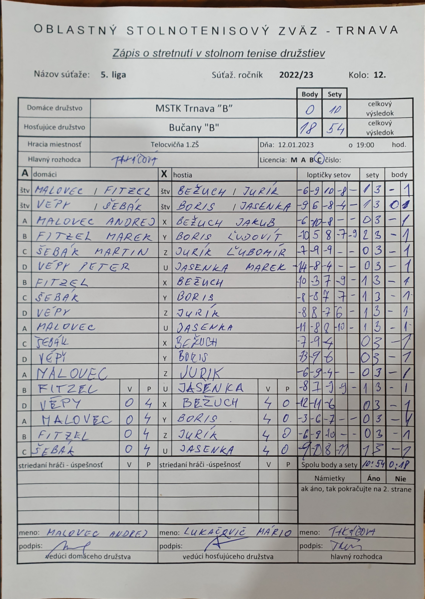 OBLASTNÝ STOLNOTENISOVÝ ZVÄZ - TRNAVA
Zápis o stretnutí v stolnom tenise družstiev
Názov súťaže: 5. liga Súťaž. ročník 2022/23 Kolo: 12.
Body Sety
Domáce družstvo MSTK Trnava "B" 0 10 celkový výsledok
Hosťujúce družstvo Bučany "B" 18 54 celkový výsledok
Hracia miestnosť Telocvičňa 1.ZŠ Dňa: 12.01.2023 o 19:00 hod.
Hlavný rozhodca Licencia: M A B C číslo:
A domáci X hostia loptičky setov sety body
štv MALOVEC / FITZEL štv BEŽUCH / JURÍK -6-9 10-8- 13 -1
štv VÉPY / ŠEBÁK štv BORIS / JASENKA -9 6-8-4 - 13 01
A MALOVEC ANDREJ X BEŽUCH JAKUB -6-10-8 - - 03 -1
B FITZEL MAREK Y BORIS ĽUDOVÍT -10 5 8-7-9 23 -1
C ŠEBÁK MARTIN Z JURÍK ĽUBOMÍR -7-9-9 - - 03 -1
D VÉPY PETER U JASENKA MAREK -14-8-4 - - 03 -1
B FITZEL X BEŽUCH -10 3-7-9 - 13 -1
C ŠEBÁK Y BORIS 13 -1
D VÉPY Z JURÍK 13 -1
A MALOVEC U JASENKA -11-8 8-10 - 13 -1
C ŠEBÁK X BEŽUCH -7-9-4 03 -1
D VÉPY Y BORIS 03 -1
A MALOVEC Z JURÍK -6-9-4 - - 03 -1
B FITZEL V P U JASENKA V P 13 -1
D VÉPY 0 4 X BEŽUCH 4 0 -12-11-6 03 -1
A MALOVEC 0 4 Y BORIS 4 0 -3-6-7 - - 03 -1
B FITZEL 0 4 Z JURÍK 4 0 -6-9-10 - - 03 -1
C ŠEBÁK 0 4 U JASENKA 4 0 13 -1
striedaní hráči - úspešnosť V P striedaní hráči - úspešnosť V P Spolu body a sety 10:54 0:18
Námietky Áno Nie
ak áno, tak pokračujte na 2. strane
meno: MALOVEC ANDREJ meno: LUKAČOVIČ MÁRIO meno:
podpis: podpis: podpis:
vedúci domáceho družstva vedúci hosťujúceho družstva hlavný rozhodca